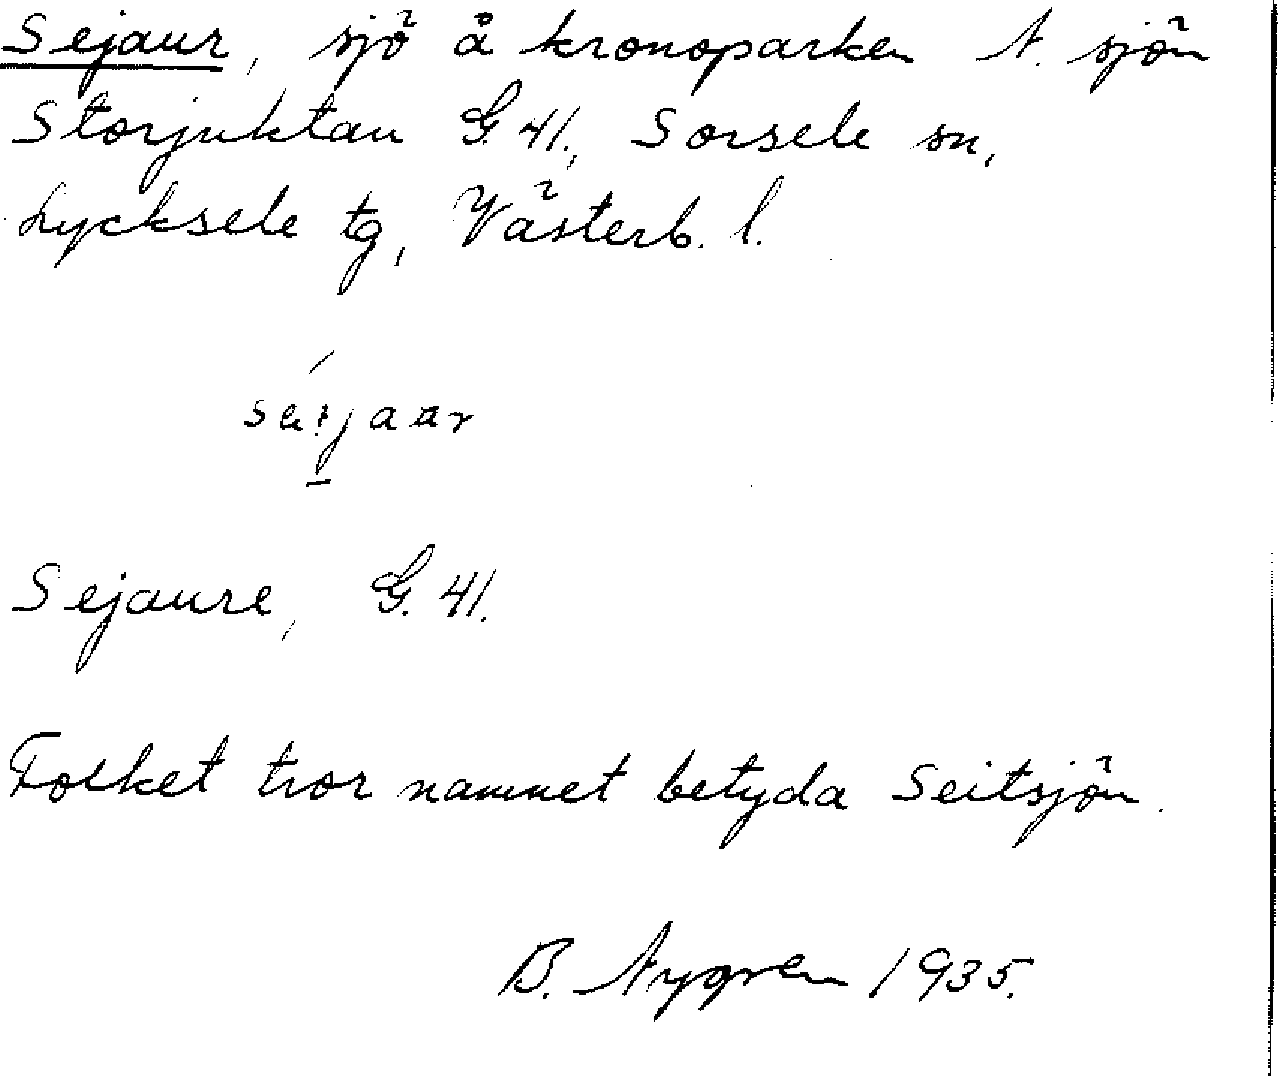 Sejaur, sjö å kronoparken N. sjön
Storjuktan G. 41., Sorsele sn,
Lycksele tg, Västerb. l.
Sejaure, G. 41.
Folket tror namnet betyda Seitsjön.
B. Nygren 1935.